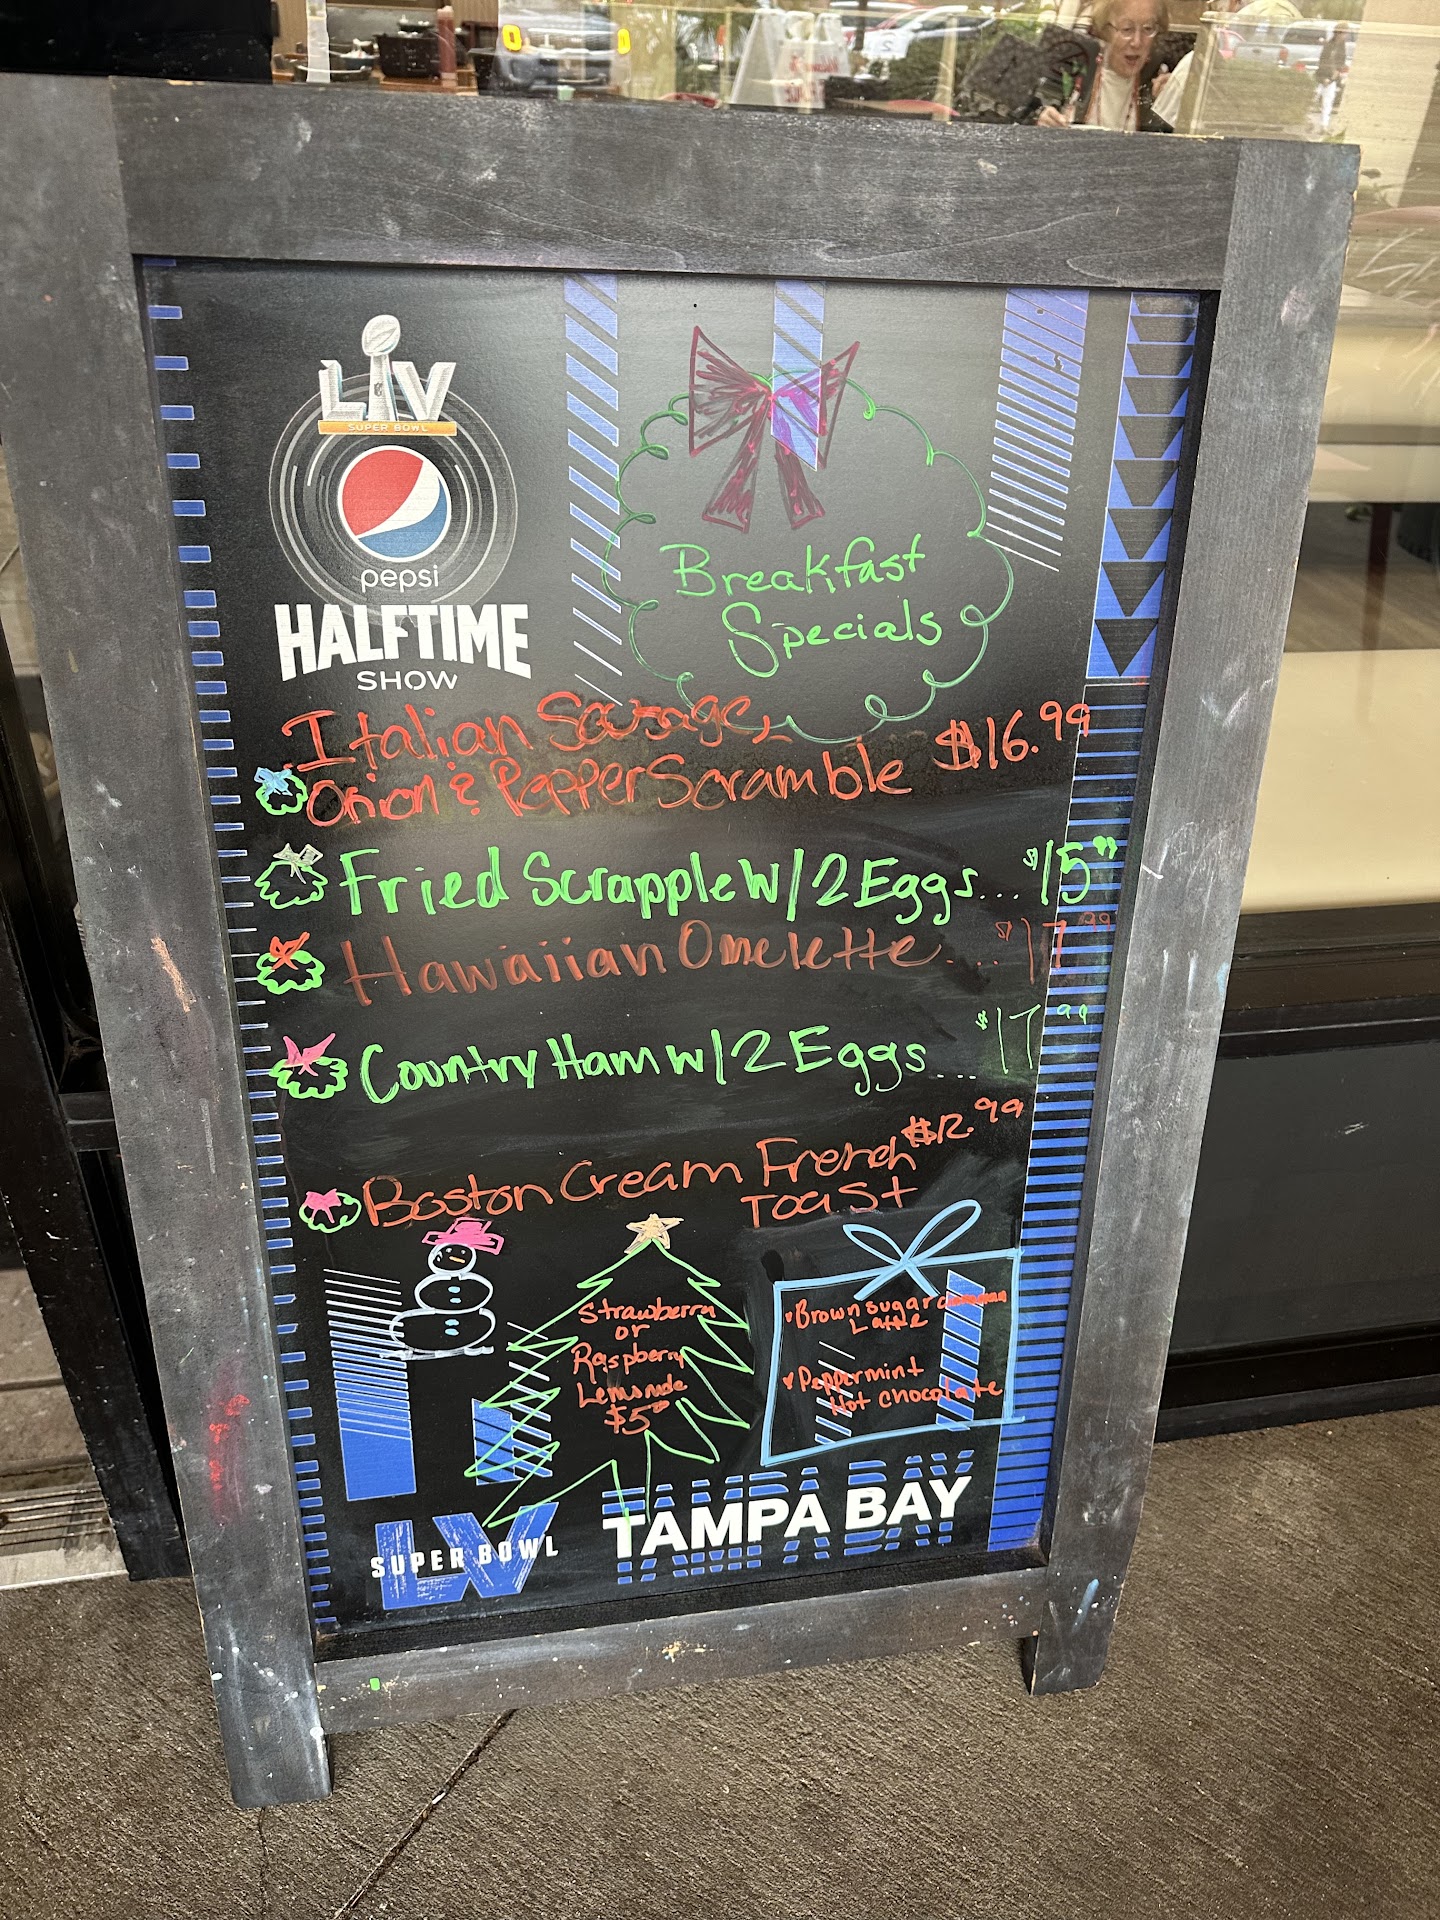 LV
SUPER BOWL
pepsi
HALFTIME
SHOW
Breakfast
Specials
Italian Sausage,
Onion & Pepper Scramble $16.99
Fried Scrapple w/2 Eggs... $15"
Hawaiian Omelette.... $17.99
Country Ham w/2 Eggs.... $17.99
Boston Cream French $12.99
Toast
Strawberry
or
Raspberry
Lemonade
$5
Brown sugar cinnamon
Latte
Peppermint
Hot chocolate
SUPER BOWL
LV
TAMPA BAY